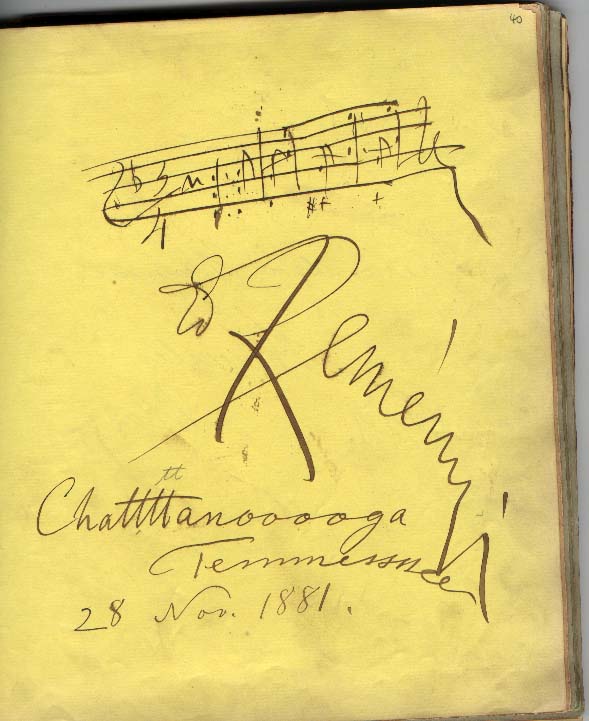 40
Ed Reményi
tt
Chattttanooooga
Tennnesssee
28 Nov. 1881.